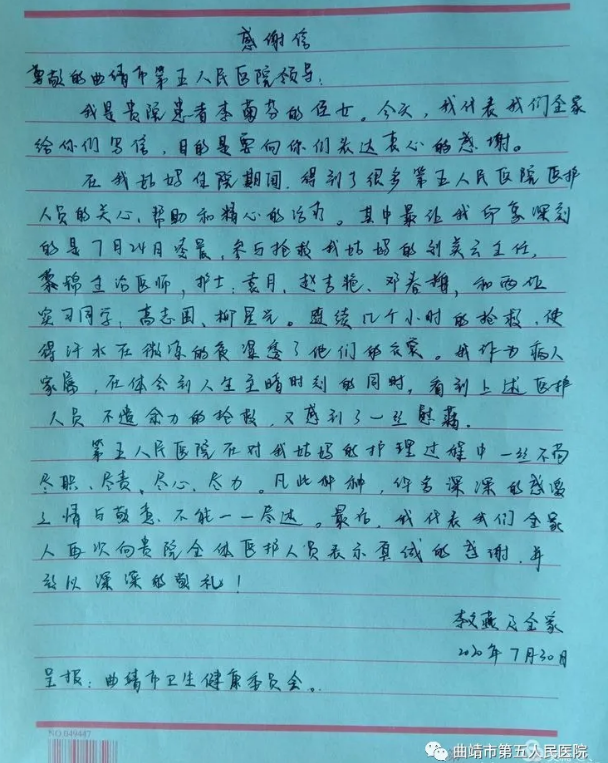 感谢信
尊敬的曲靖市第五人民医院领导：
我是贵院患者李菊芬的侄女。今天，我代表我们全家
给你们写信，目的是要向你们表达衷心的感谢。
在我姑妈住院期间，得到了很多第五人民医院医护
人员的关心、帮助和精心的治疗。其中最让我印象深刻
的是7月24日凌晨，参与抢救我姑妈的刘美云主任，
锦主治医师，护士：袁月、赵吉艳、邓春，和两位
实习同学：高志国、柳星。连续几个小时的抢救，使
得汗水在微凉的夜湿透了他们的衣裳。我作为病人
家属，在体会到人生至暗时刻的同时，看到上述医护
人员不遗余力的抢救，又感到了一丝慰藉。
第五人民医院在对我姑妈的护理过程中一丝不苟
尽职、尽责、尽心、尽力。凡此种种，许多深深的感激
之情与敬意，不能一一尽述。最后，我代表我们全家
人再次向贵院全体医护人员表示真诚的感谢，并
致以深深的敬礼！
李燕及全家
2020年7月30日
呈报：曲靖市卫生健康委员会。
NO.649447
曲靖市第五人民医院